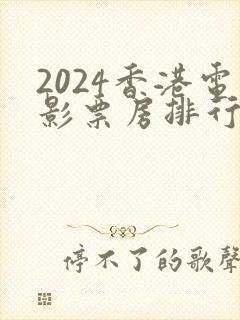 2024香港電
影票房排行
停不了的歌聲